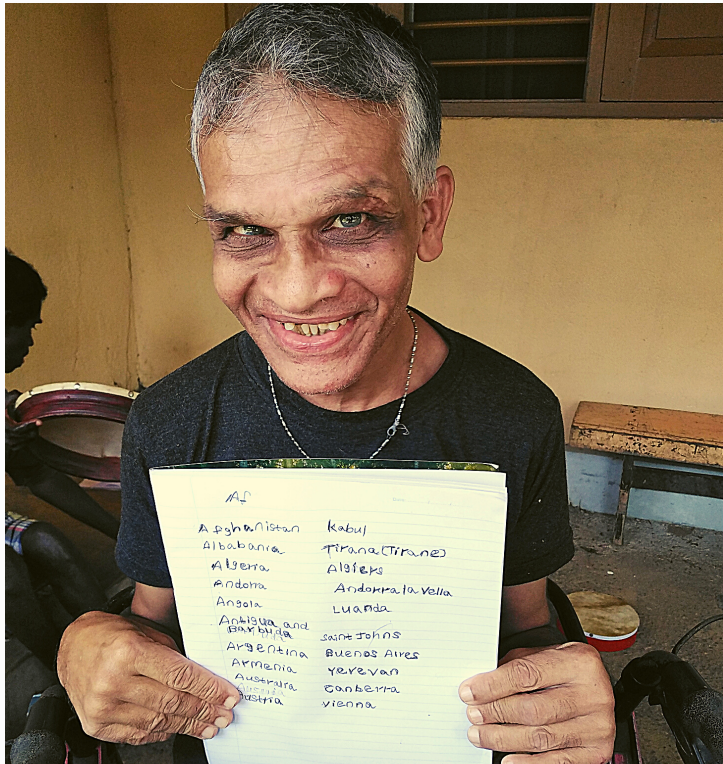 Af
Afghanistan Kabul
Albabania Tirana(Tirane)
Algeria Algiers
Andorra Andorra la Vella
Angola Luanda
Antigua and
Barbuda Saint Johns
Argentina Buenos Aires
Armenia Yerevan
Australia Canberra
Austria Vienna